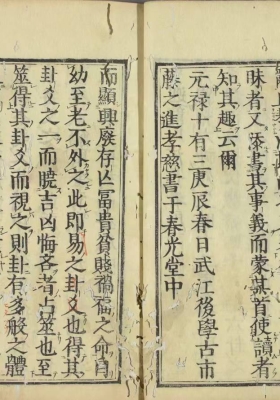 昧者又添書其事義而蒙求首使讀者
知其趣云爾
元禄十有三庚辰春日武江後學古市
藤之進孝 書于春光堂中
而顯興廢存亡冨貴貧賤禍福之命自
幼至老不外之此即易之卦爻也得其
卦爻之一而曉吉凶悔吝者占筮也至
筮得其卦爻而視之則卦有多般之體